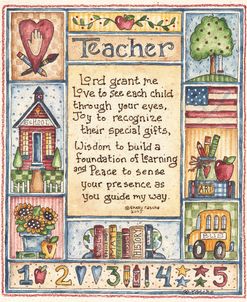 Teacher
Lord grant me
Love to see each child
through your eyes,
Joy to recognize
their special gifts,
Wisdom to build a
foundation of learning
and Peace to sense
your presence as
you guide my way.
SCHOOL
ART
1 2 3 4 5